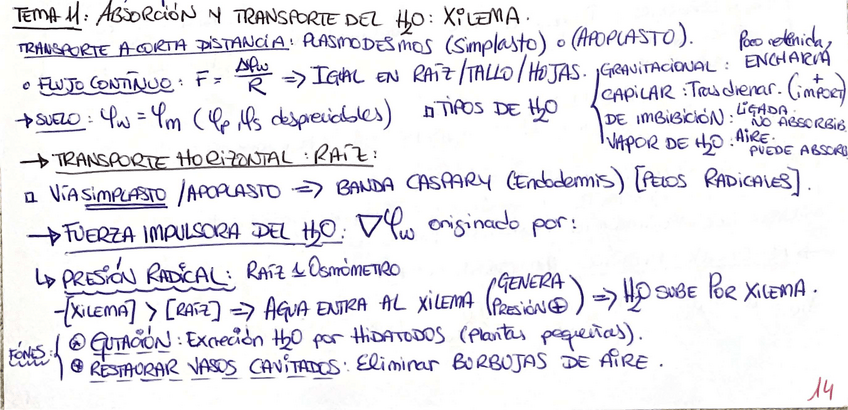 TEMA 11: ABSORCIÓN Y TRANSPORTE DEL H2O: XILEMA.
TRANSPORTE A CORTA DISTANCIA: PLASMODESMOS (Simplasto) o (APOPLASTO).
o FLUJO CONTÍNUO: F = Δψw / R ⇒ IGUAL EN RAÍZ/TALLO/HOJAS.
→ SUELO: ψw = ψm (ψp, ψs despreciables)
□ TIPOS DE H2O
GRAVITACIONAL: Poco retenida, ENCHARCA
CAPILAR: Tras drenar. (+ import)
DE IMBIBICIÓN: LIGADA. NO ABSORBIB
VAPOR DE H2O: AIRE. PUEDE ABSORB
→ TRANSPORTE HORIZONTAL: RAÍZ:
□ VÍA SIMPLASTO / APOPLASTO ⇒ BANDA CASPARY (Endodermis) [PELOS RADICALES].
→ FUERZA IMPULSORA DEL H2O: ∇ψw originado por:
↳ PRESIÓN RADICAL: RAÍZ Osmómetro
- [XILEMA] > [RAÍZ] ⇒ AGUA ENTRA AL XILEMA (GENERA PRESIÓN ⊕) ⇒ H2O SUBE POR XILEMA.
⊕ GUTACIÓN: Excreción H2O por HIDATODOS (plantas pequeñas).
⊕ RESTAURAR VASOS CAVITADOS: Eliminar BURBUJAS DE AIRE.
14